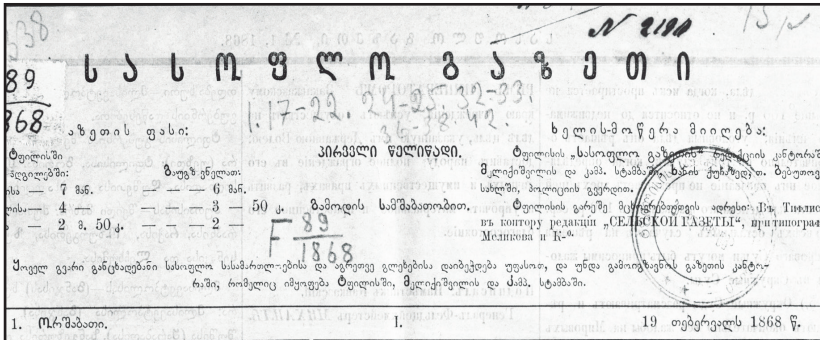 N 2190
89
868
სასოფლო გაზეთი
1.17-22. 24-25. 32-33.
აზეთის ფასი:
ტფილისში
გაუგზავნელათ:
7 მან. — — 6 მან.
4 — — — 3 — 50 კ.
2 მ. 50 კ. — — 2 —
პირველი წელიწადი.
გამოდის სამშაბათობით.
F 89
1868
ხელის-მოწერა მიიღება:
ტფილისის „სასოფლო გაზეთის“ რედაქციის კანტორაში
მელიქიშვილის და კამპ. სტამბაში
სახლში, პოლიციის გვერდით.
ტფილისის გარეშე მცხოვრებთათვის ადრესი: Въ Тифлисъ
въ контору редакціи „СЕЛЬСКОЙ ГАЗЕТЫ“, при типограф.
Меликова и Ко.
ყოველ გვარი განცხადებანი სასოფლო სასამართლოებისა და აგრეთვე გლეხებისა დაიბეჭდება უფასოთ, და უნდა გამოიგზავნოს გაზეთის კანტო-
რაში, რომელიც იმყოფება ტფილისში, მელიქიშვილის და კამპ. სტამბაში.
1. ორშაბათი.
I.
19 თებერვალს 1868 წ.